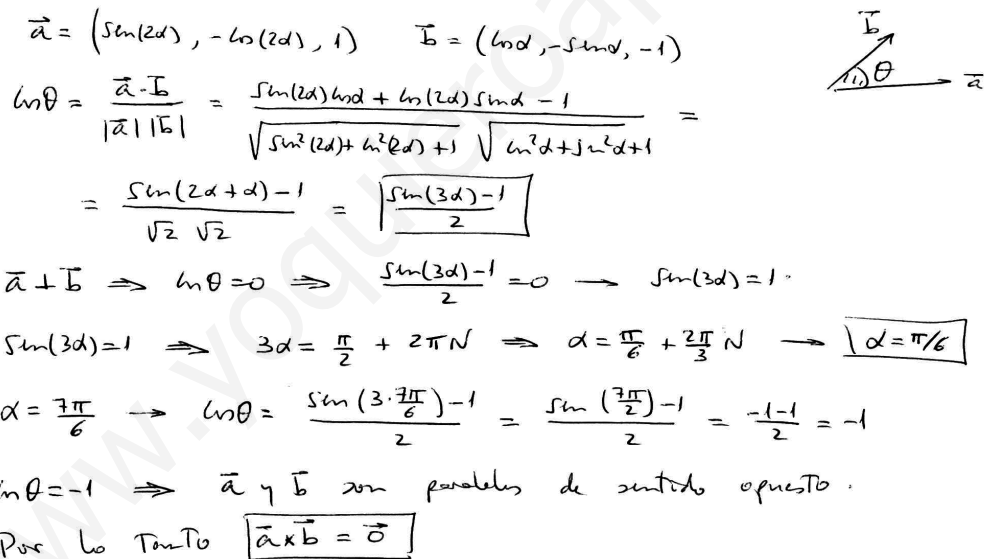 a⃗ = (sen(2α), -cos(2α), 1)   b̄ = (cosα, -senα, -1)
b̄
θ
ā
cosθ = (ā·b̄)/(|ā||b̄|) = (sen(2α)cosα + cos(2α)senα - 1)/(√(sen²(2α) + cos²(2α) + 1) √(cos²α + sen²α + 1)) =
= (sen(2α+α) - 1)/(√2 √2) = (sen(3α) - 1)/2
ā ⊥ b̄ ⇒ cosθ = 0 ⇒ (sen(3α) - 1)/2 = 0 → sen(3α) = 1.
sen(3α) = 1 ⇒ 3α = π/2 + 2πN ⇒ α = π/6 + (2π/3) N → α = π/6
α = 7π/6 → cosθ = (sen(3·7π/6) - 1)/2 = (sen(7π/2) - 1)/2 = (-1-1)/2 = -1
cosθ = -1 ⇒ ā y b̄ son paralelos de sentido opuesto.
Por lo Tanto ā×b̄ = 0⃗